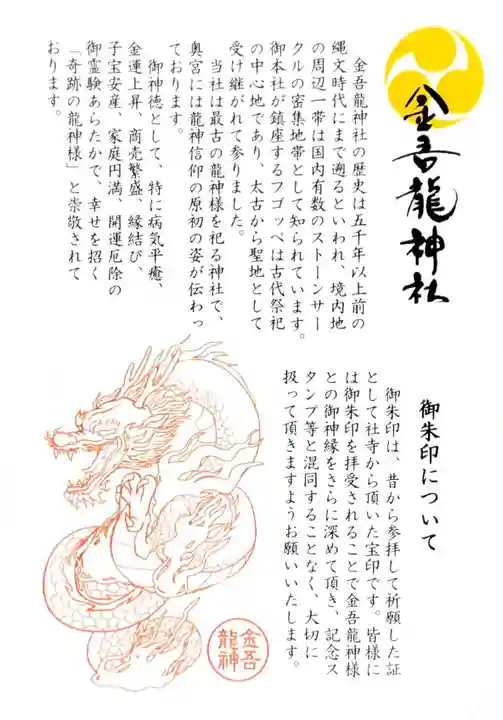 金吾龍神社
金吾龍神社の歴史は五千年以上前の
縄文時代にまで遡るといわれ、境内地
の周辺一帯は国内有数のストーンサー
クルの密集地帯として知られています。
御本社が鎮座するフゴッペは古代祭祀
の中心地であり、太古から聖地として
受け継がれて参りました。
当社は最古の龍神様を祀る神社で、
奥宮には龍神信仰の原初の姿が伝わっ
ております。
御神徳として、特に病気平癒、
金運上昇、商売繁盛、縁結び、
子宝安産、家庭円満、開運厄除の
御霊験あらたかで、幸せを招く
「奇跡の龍神様」と崇敬されて
おります。
御朱印について
御朱印は、昔から参拝して祈願した証
として社寺から頂いた宝印です。皆様に
は御朱印を拝受されることで金吾龍神様
との御神縁をさらに深めて頂き、記念ス
タンプ等と混同することなく、大切に
扱って頂きますようお願いいたします。
金吾
龍神